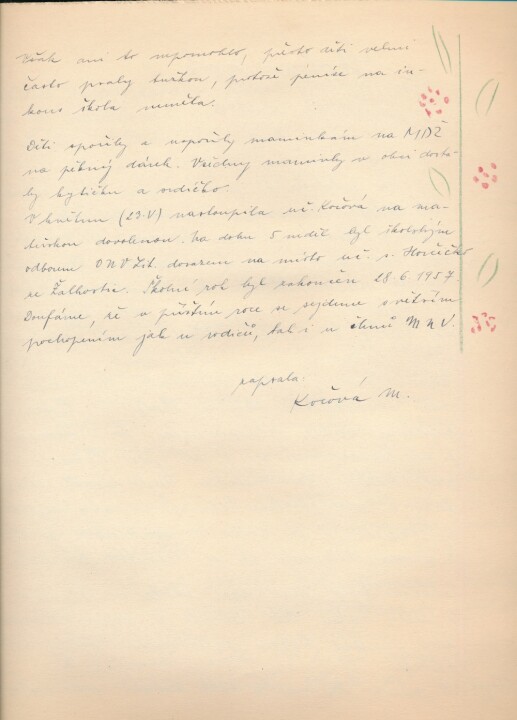 Však ani to nepomohlo, přesto děti velmi
často psaly tužkou, protože peníze na in-
koust škola neměla.
Děti spořily a uspořily maminkám na MDŽ
na pěkný dárek. Všechny maminky v obci dosta-
ly kytičku a srdíčko.
V květnu (23.V) nastoupila uč. Kočová na ma-
teřskou dovolenou. Na dobu 5 neděl byl školským
odborem ONV Lit. dosazen na místo uč. s. Horčičko
ze Žalhostic. Školní rok byl zakončen 28.6.1957.
Doufáme, že v příštím roce se sejdeme s větším
pochopením jak u rodičů, tak i u členů MNV.
napsala:
Kočová M.